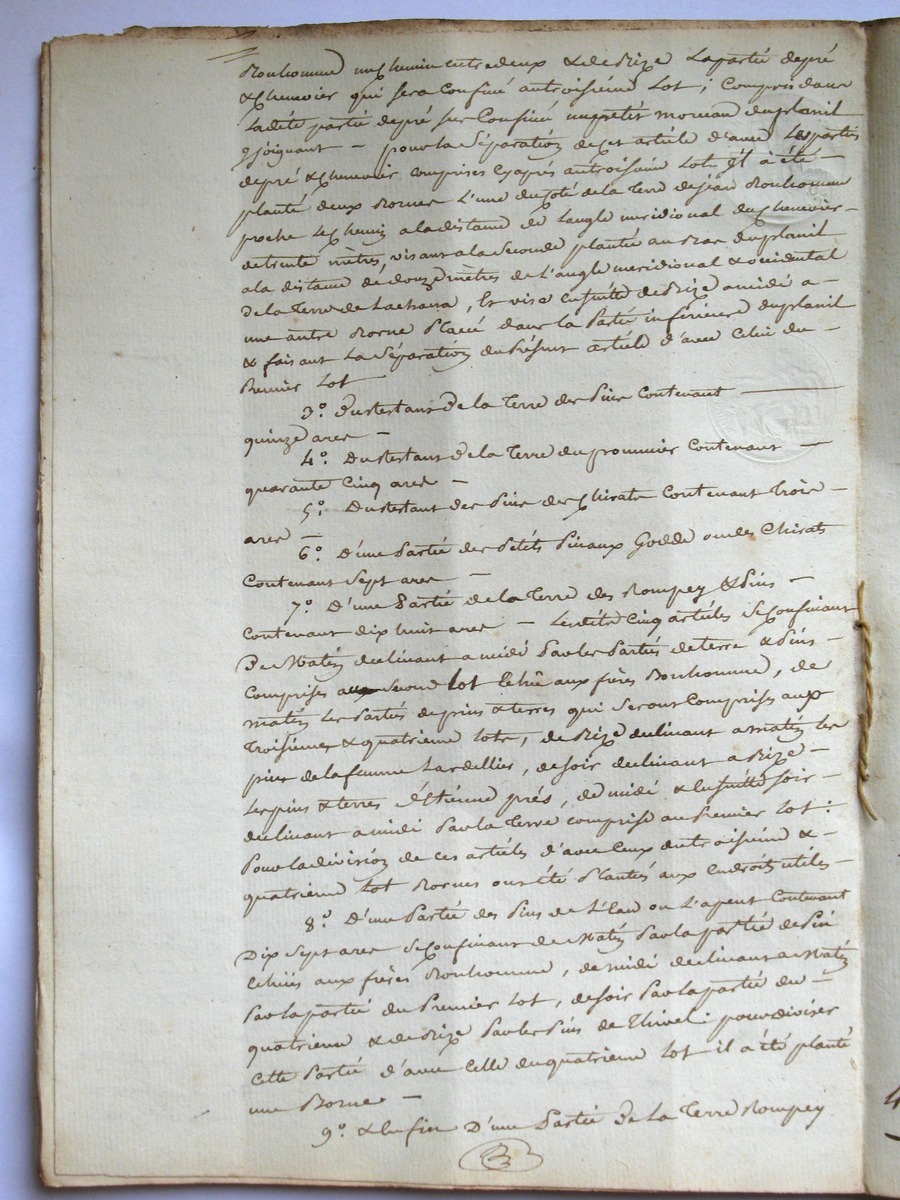 Bonhomme un chemin entre deux & de Bize La partie de pré
& chenevier qui sera confiné au troisième Lot ; Compris dans
Ladite partie de pré sus Confiné un petit morceau du planil
y joignant — pour la Séparation de cet article d'avec Les parties
de pré & chenevier comprises cy après au troisième Lot, il a été —
planté deux Bornes L'une du côté de la Terre de jean Bonhomme
proche Le chemin a la distance de Langle meridional du chenevier —
de trente mètres, visant a la Seconde plantée au Bas du planil
a la distance de douze mètres de L'angle meridional & occidental
de la Terre de Lachaux, Et vise Ensuitte de Bize a midi a —
une autre Borne Placée dans la Partie inférieure du planil
& faisant La Séparation du Présent article d'avec Celui du —
Premier Lot —
3° Du restant de la Terre des Pins Contenant —
quinze ares —
4° Du restant de la Terre du prommier Contenant —
quarante Cinq ares —
5° Du restant des Pins des Chirats Contenant Trois —
ares —
6° D'une Partie des Petits Pinaux Godde ou des Chirats
Contenant Sept ares —
7° D'une Partie de la Terre des Rompey & Pins —
Contenant dix huit ares — Lesdits Cinq articles Se Confinant
De Matin declinant a midi Par les Parties de terre & Pins —
Comprises au Second Lot Echu aux frères Bonhomme, de
matin les Parties de pins & terres qui Seront Comprises aux
Troisièmes & quatrieme Lots, de Bize declinant a matin les
pins de la femme Lardellier, de soir declinant a Bize —
Les pins & terres d'Etienne prés, de midi & Ensuitte soir —
declinant a midi Par la Terre comprise au Premier Lot :
Pour la division de ces articles d'avec Ceux du troisieme & —
quatrieme Lot Bornes ont été Plantés aux Endroits utiles —
8° D'une Partie des Pins de L'Eau ou L'apent Contenant
Dix Sept ares Se Confinant de Matin Par la partie de Pin
Echües aux frères Bonhomme, de midi declinant a Matin
Par la partie du Premier Lot, de soir Par la partie du —
quatrieme & de Bize Par les Pins de Thivel : pour diviser
Cette Partie d'avec Celle du quatrieme Lot il a été planté
une Borne —
9° & Enfin D'une Partie De La Terre Rompey